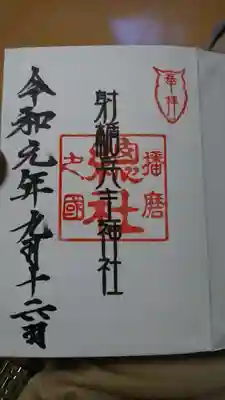 奉拝
播磨
総社
之國
射楯兵主神社
令和元年九月十六日